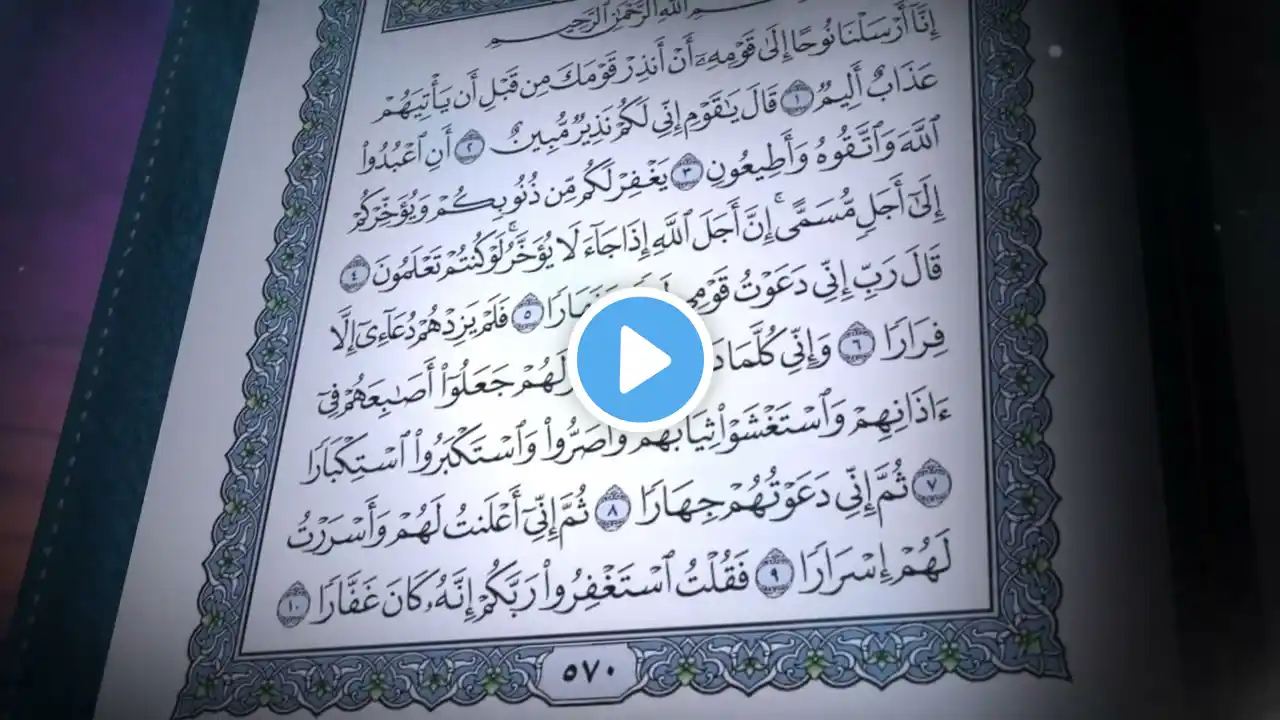 بِسْمِ اللَّهِ الرَّحْمَٰنِ الرَّحِيمِ
إِنَّا أَرْسَلْنَا نُوحًا إِلَىٰ قَوْمِهِۦٓ أَنْ أَنذِرْ قَوْمَكَ مِن قَبْلِ أَن يَأْتِيَهُمْ
عَذَابٌ أَلِيمٌ ١ قَالَ يَٰقَوْمِ إِنِّى لَكُمْ نَذِيرٌ مُّبِينٌ ٢ أَنِ ٱعْبُدُوا۟
ٱللَّهَ وَٱتَّقُوهُ وَأَطِيعُونِ ٣ يَغْفِرْ لَكُم مِّن ذُنُوبِكُمْ وَيُؤَخِّرْكُمْ
إِلَىٰٓ أَجَلٍ مُّسَمًّى ۚ إِنَّ أَجَلَ ٱللَّهِ إِذَا جَآءَ لَا يُؤَخَّرُ ۖ لَوْ كُنتُمْ تَعْلَمُونَ ٤
قَالَ رَبِّ إِنِّى دَعَوْتُ قَوْمِى ٥ فَلَمْ يَزِدْهُمْ دُعَآءِىٓ إِلَّا
فِرَارًا ٦ وَإِنِّى كُلَّمَا لَهُمْ جَعَلُوٓا۟ أَصَٰبِعَهُمْ فِىٓ
ءَاذَانِهِمْ وَٱسْتَغْشَوْا۟ ثِيَابَهُمْ وَأَصَرُّوا۟ وَٱسْتَكْبَرُوا۟ ٱسْتِكْبَارًا
٧ ثُمَّ إِنِّى دَعَوْتُهُمْ جِهَارًا ٨ ثُمَّ إِنِّىٓ أَعْلَنتُ لَهُمْ وَأَسْرَرْتُ
لَهُمْ إِسْرَارًا ٩ فَقُلْتُ ٱسْتَغْفِرُوا۟ رَبَّكُمْ إِنَّهُۥ كَانَ غَفَّارًا ١٠
٥٧٠